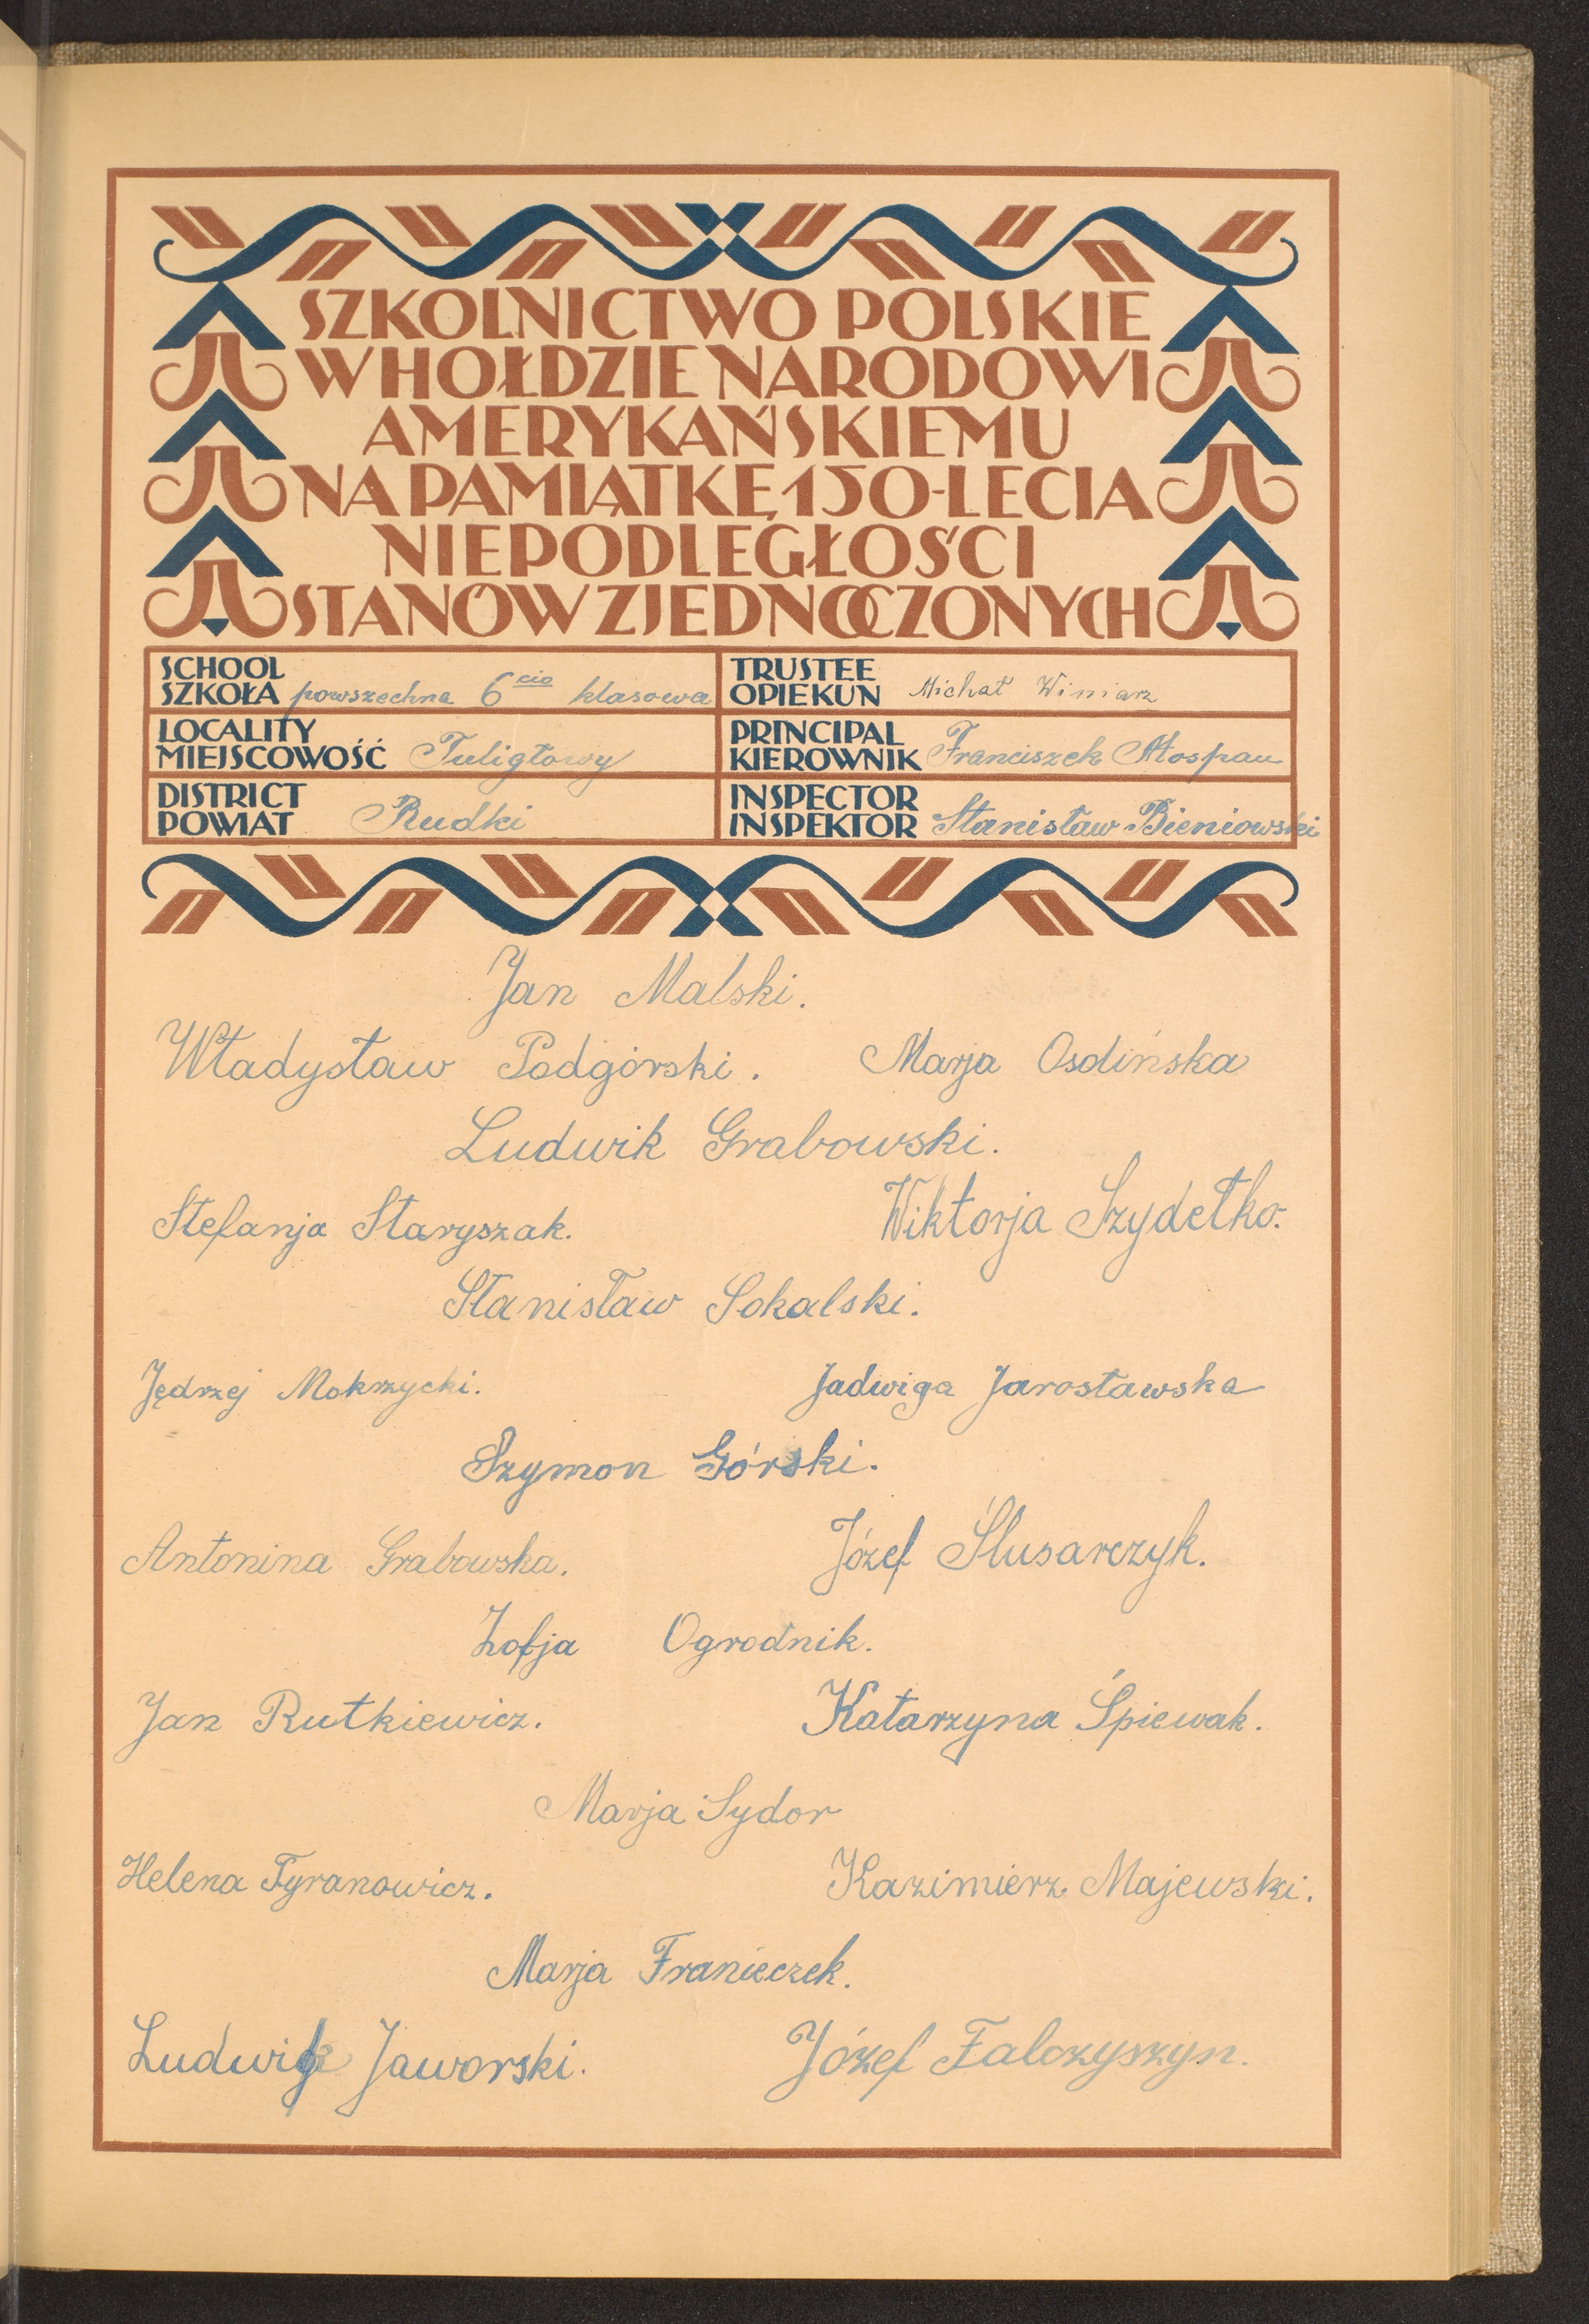 SZKOLNICTWO POLSKIE
W HOŁDZIE NARODOWI
AMERYKAŃSKIEMU
NA PAMIĄTKĘ 150-LECIA
NIEPODLEGŁOŚCI
STANÓW ZJEDNOCZONYCH
SCHOOL
SZKOŁA powszechna 6cio klasowa
TRUSTEE
OPIEKUN Michał Winiarz
LOCALITY
MIEJSCOWOŚĆ Tuligłowy
PRINCIPAL
KIEROWNIK Franciszek
DISTRICT
POWIAT Rudki
INSPECTOR
INSPEKTOR Stanisław Bieniowski
Jan Malski.
Władysław Podgórski. Marja Osdińska
Ludwik Grabowski.
Stefanja Staryszak. Wiktorja Szydełko.
Stanisław Sokalski.
Jędrzej Mokrzycki. Jadwiga Jarosławska
Szymon Górski.
Antonina Grabowska. Józef Ślusarczyk.
Zofja Ogrodnik.
Jan Rutkiewicz. Katarzyna Śpiewak.
Marja Sydor
Helena Tyranowicz. Kazimierz Majewski.
Marja Franieczek.
Ludwik Jaworski. Józef Falczyszyn.